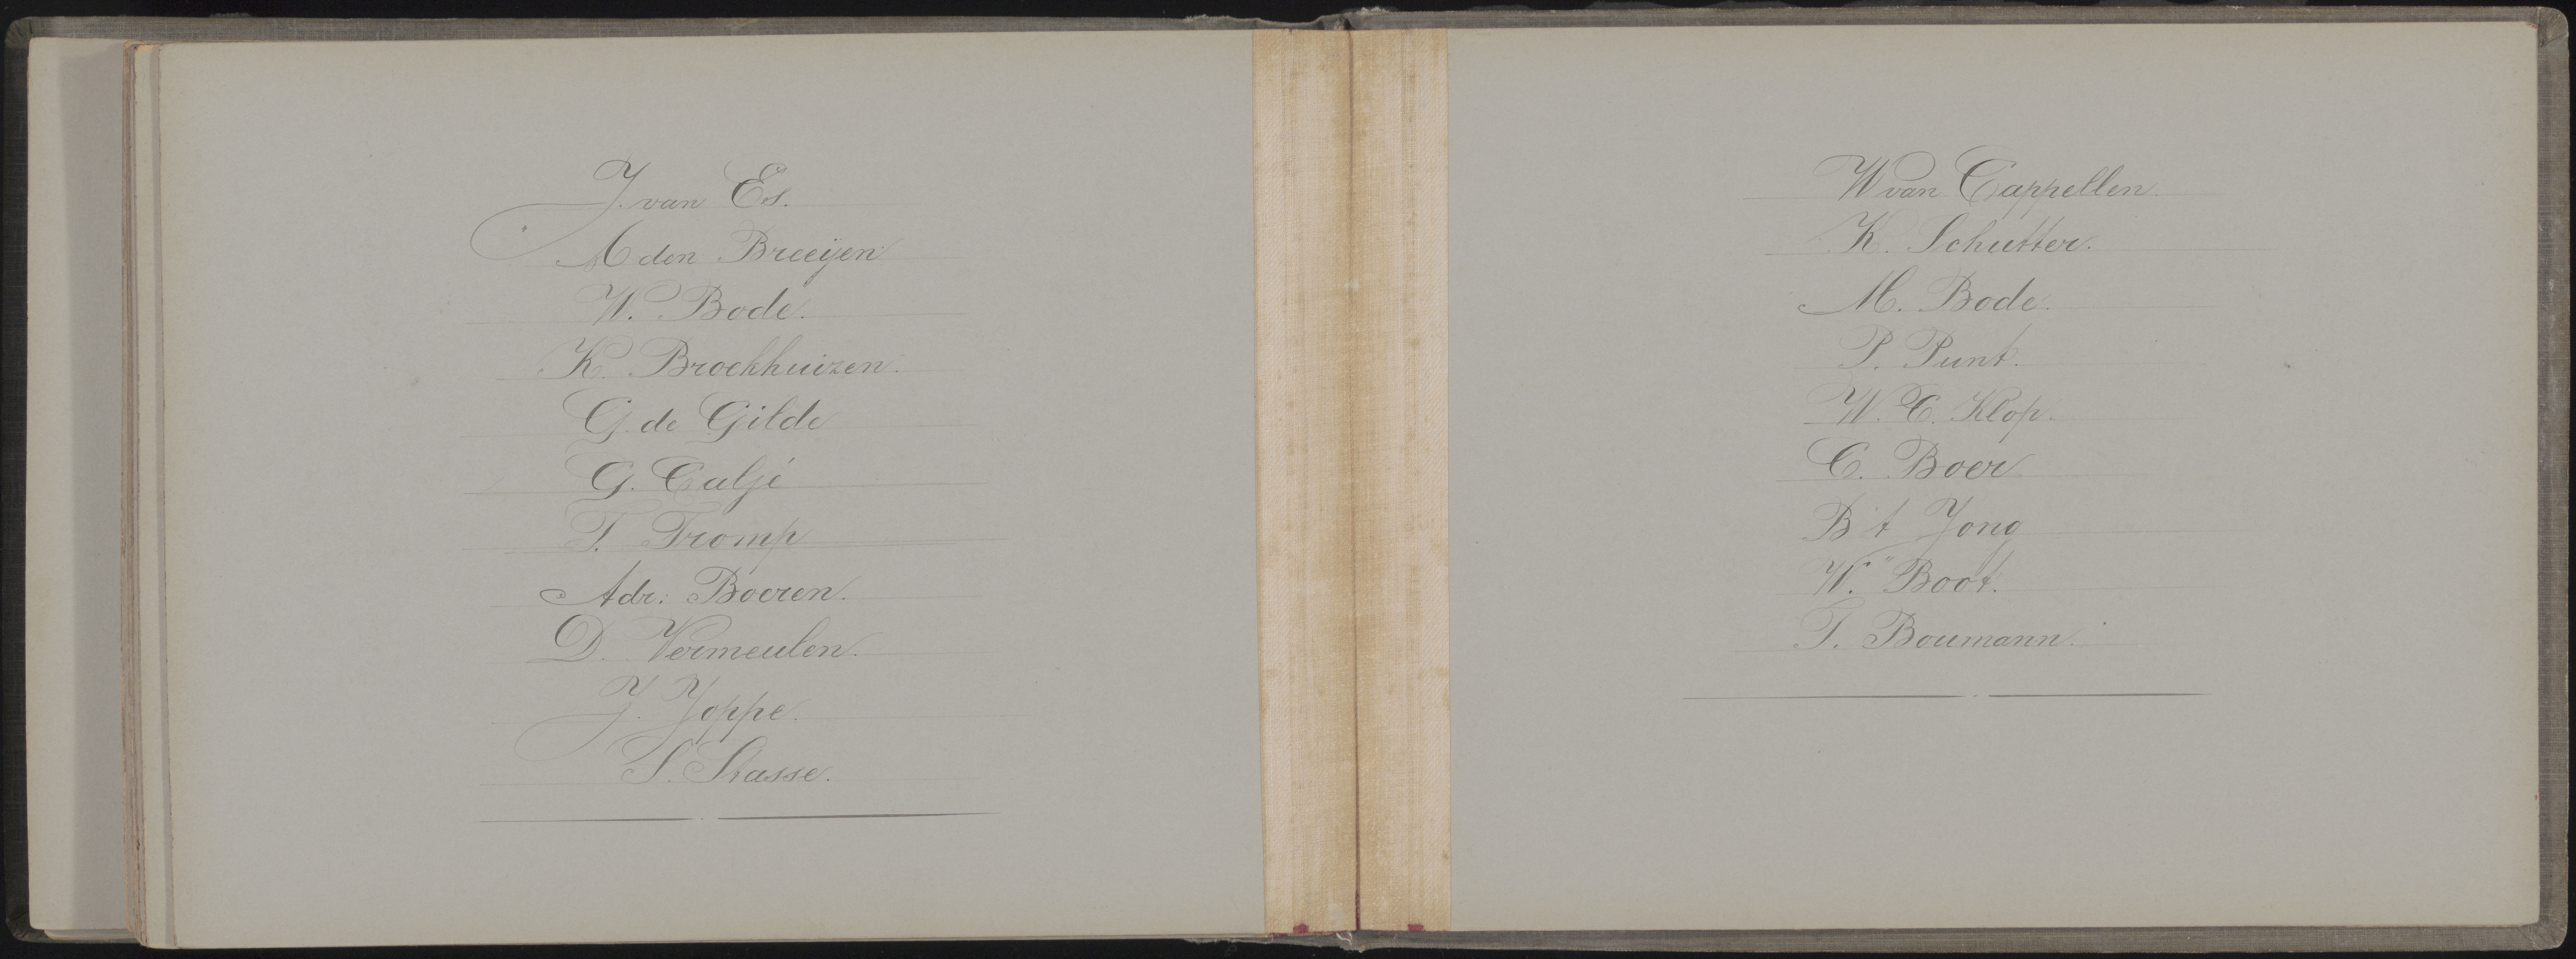 J. van Es.
A den Breeijen
W. Bode.
K. Broekhuizen.
G. de Gilde
G. Caljé
T. Tromp
Adr: Boeren.
D. Vermeulen.
J. Joppe.
S. Stasse.
W van Cappellen.
K. Schutter.
M. Bode.
P. Punt.
W. C. Klop.
C. Boer
B 't Jong
W. Boot.
T. Boumann.